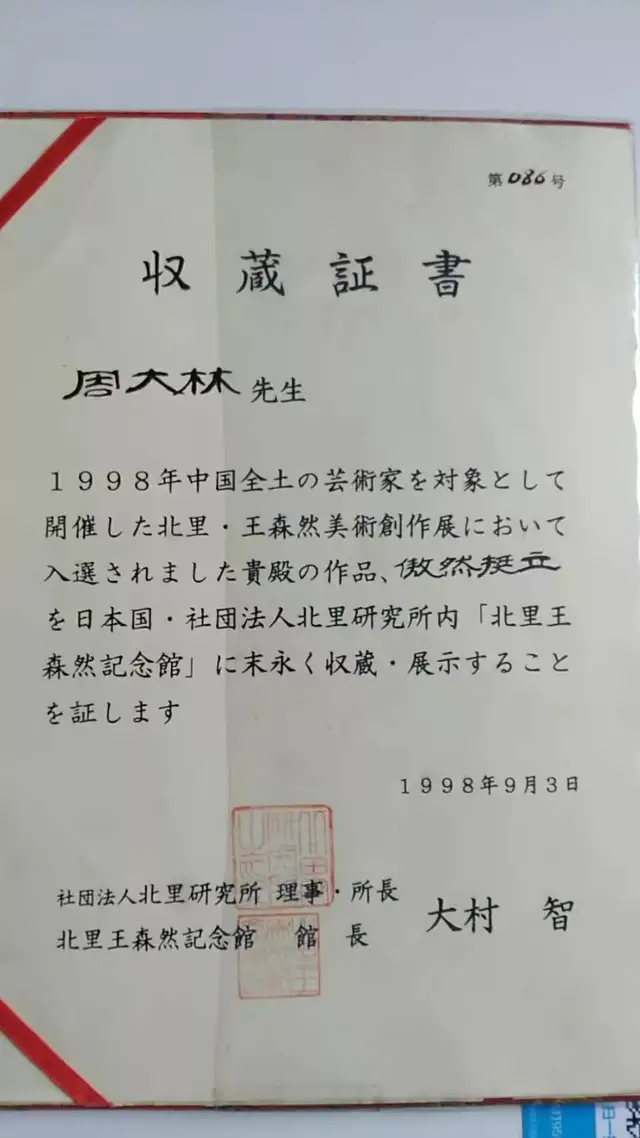 第086号
収蔵証書
周大林 先生
１９９８年中国全土の芸術家を対象として
開催した北里・王森然美術創作展において
入選されました貴殿の作品、傲然挺立
を日本国・社団法人北里研究所内「北里王
森然記念館」に末永く収蔵・展示すること
を証します
１９９８年９月３日
社団法人北里研究所 理事・所長
北里王森然記念館 館 長 大村 智